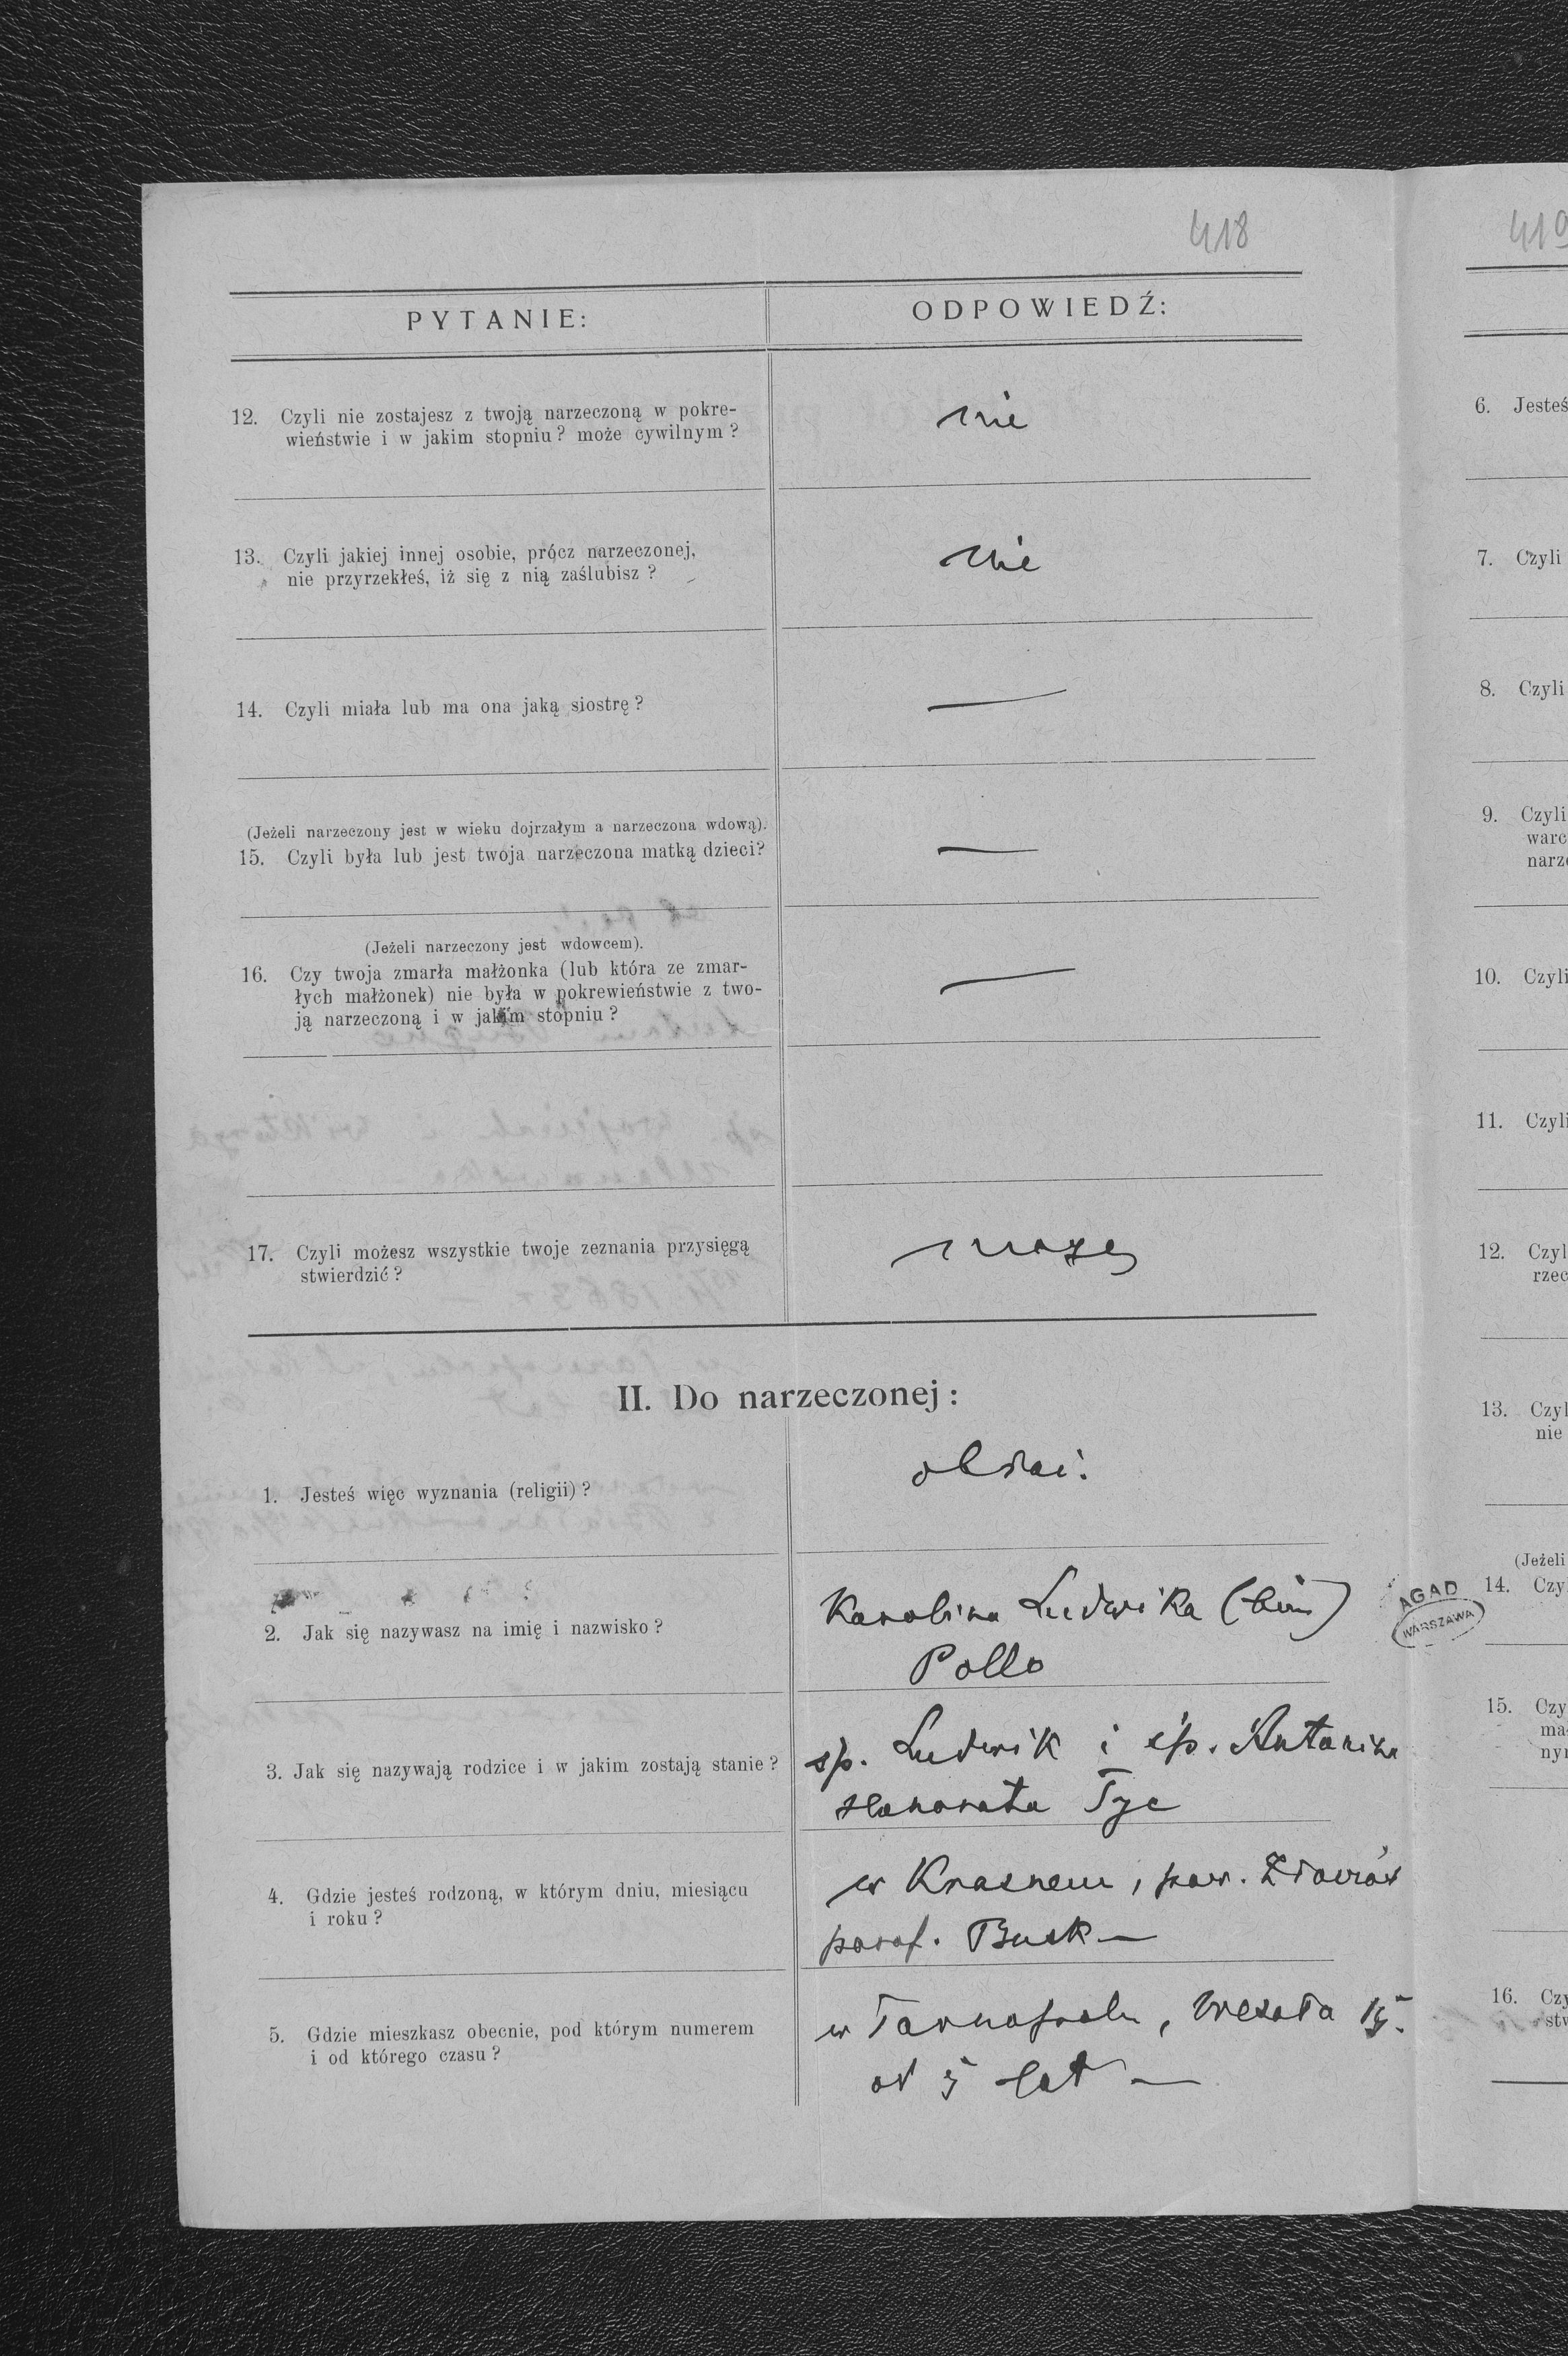 418
PYTANIE: ODPOWIEDŹ:
12. Czyli nie zostajesz z twoją narzeczoną w pokre-
wieństwie i w jakim stopniu? może cywilnym?
nie
13. Czyli jakiej innej osobie, prócz narzeczonej,
nie przyrzekłeś, iż się z nią zaślubisz?
nie
14. Czyli miała lub ma ona jaką siostrę?
—
(Jeżeli narzeczony jest w wieku dojrzałym a narzeczona wdową).
15. Czyli była lub jest twoja narzeczona matką dzieci?
—
(Jeżeli narzeczony jest wdowcem).
16. Czy twoja zmarła małżonka (lub która ze zmar-
łych małżonek) nie była w pokrewieństwie z two-
ją narzeczoną i w jakim stopniu?
—
17. Czyli możesz wszystkie twoje zeznania przysięgą
stwierdzić?
mogę
II. Do narzeczonej:
1. Jesteś więc wyznania (religii)?
2. Jak się nazywasz na imię i nazwisko?
Karolina Ludwika (bim)
Pollo
3. Jak się nazywają rodzice i w jakim zostają stanie?
śp. Ludwik i śp. Antonina
Honorata Tyc
4. Gdzie jesteś rodzoną, w którym dniu, miesiącu
i roku?
w Krasnem, pow. Złoczów
paraf. Busk —
5. Gdzie mieszkasz obecnie, pod którym numerem
i od którego czasu?
w Tarnopolu, Wesoła
od 5 lat —
AGAD
WARSZAWA
419
6. Jesteś
7. Czyli
8. Czyli
9. Czyli
warc
narze
10. Czyli
11. Czyli
12. Czyl
rzec
13. Czyl
nie
(Jeżeli
14. Czy
15. Czy
ma
nyn
16. Czy
stw